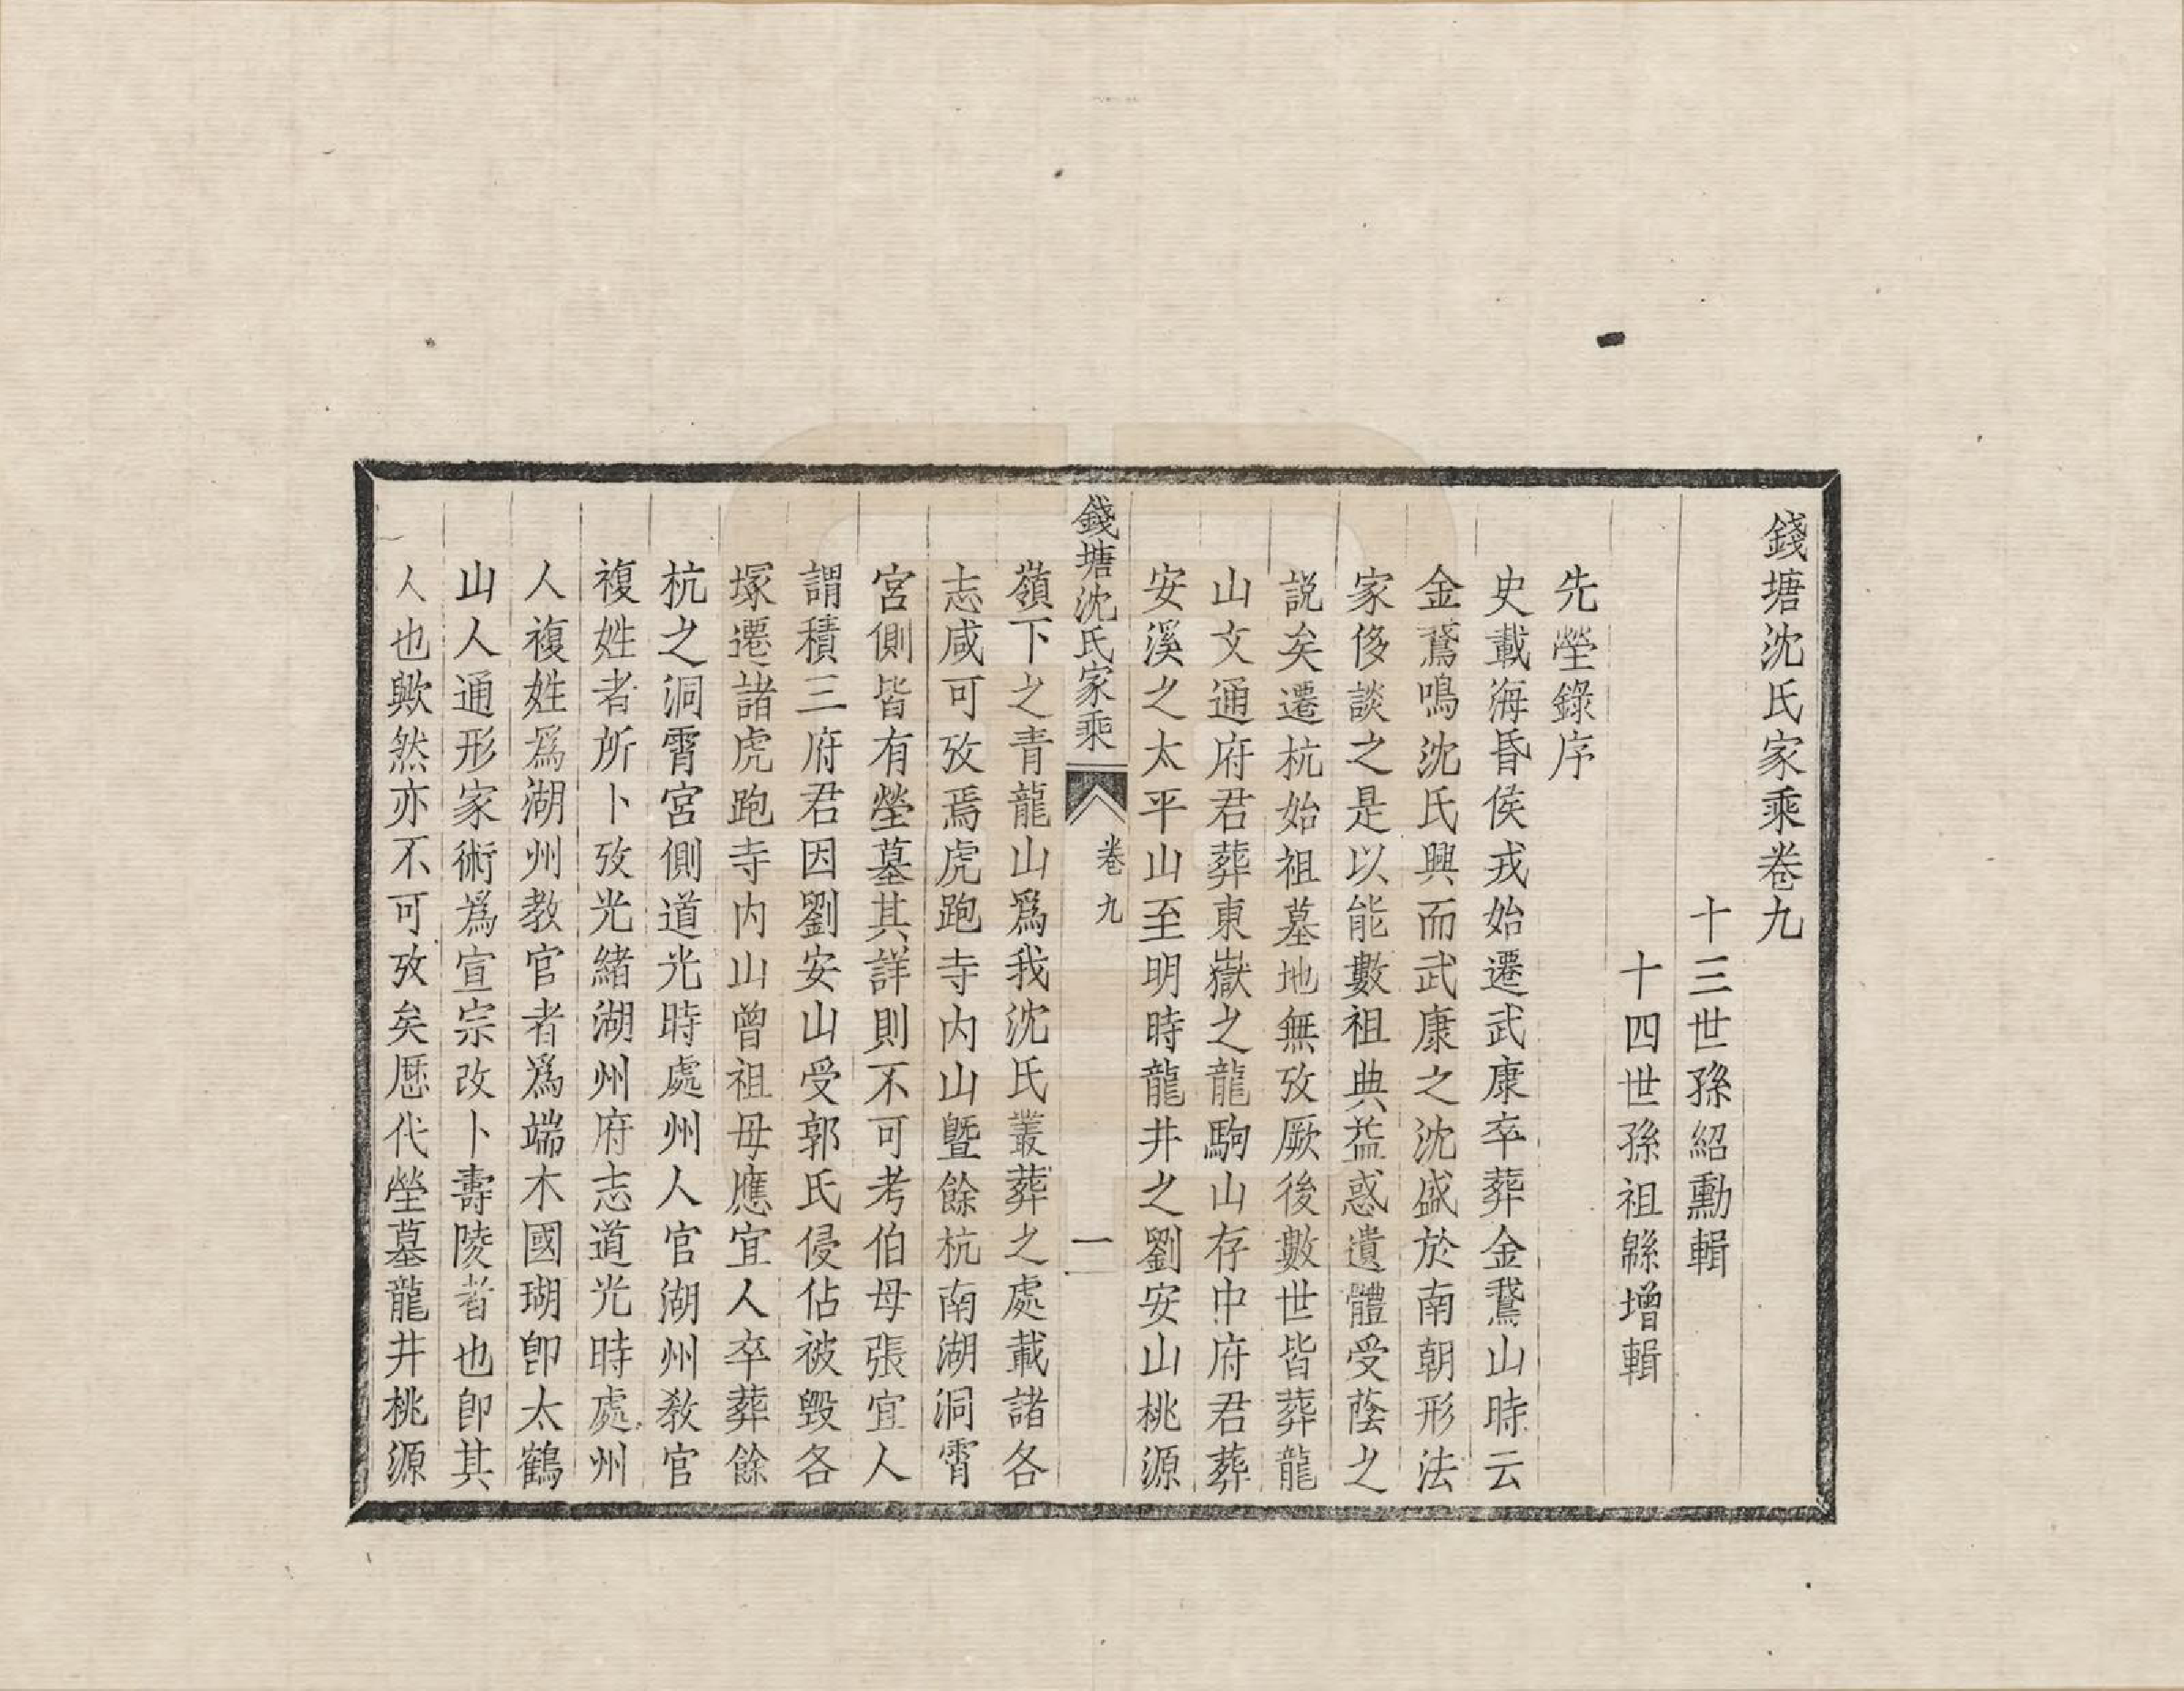 錢塘沈氏家乘卷九
十三世孫紹勳輯
十四世孫祖緜增輯
先塋錄序
史載海昏侯戎始遷武康卒葬金鵞山時云
金鵞鳴沈氏興而武康之沈盛於南朝形法
家侈談之是以能數祖典益惑遺體受蔭之
説矣遷杭始祖墓地無攷厥後數世皆葬龍
山文通府君葬東嶽之龍駒山存中府君葬
安溪之太平山至明時龍井之劉安山桃源
錢塘沈氏家乘 卷九 一
嶺下之青龍山爲我沈氏叢葬之處載諸各
志咸可攷焉虎跑寺内山曁餘杭南湖洞霄
宮側皆有塋墓其詳則不可考伯母張宜人
謂積三府君因劉安山受郭氏侵佔被毁各
塚遷諸虎跑寺内山曾祖母應宜人卒葬餘
杭之洞霄宮側道光時處州人官湖州教官
複姓者所卜攷光緒湖州府志道光時處州
人複姓爲湖州教官者爲端木國瑚卽太鶴
山人通形家術爲宣宗改卜壽陵者也卽其
人也歟然亦不可攷矣厯代塋墓龍井桃源